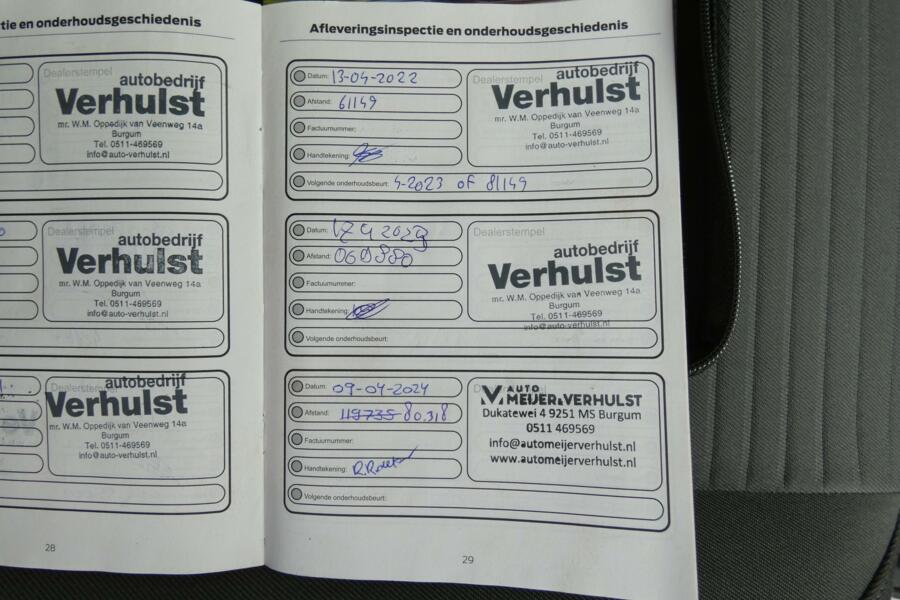 tie en onderhoudsgeschiedenis
Dealerstempel
autobedrijf
Verhulst
mr. W.M. Oppedijk van Veenweg 14a
Burgum
Tel. 0511-469569
info@auto-verhulst.nl
Dealerstempel
autobedrijf
Verhulst
mr. W.M. Oppedijk van Veenweg 14a
Burgum
Tel. 0511-469569
info@auto-verhulst.nl
Dealerstempel
autobedrijf
Verhulst
mr. W.M. Oppedijk van Veenweg 14a
Burgum
Tel. 0511-469569
info@auto-verhulst.nl
28
Afleveringsinspectie en onderhoudsgeschiedenis
Datum: 13-04-2022
Afstand: 61149
Factuurnummer:
Handtekening:
Volgende onderhoudsbeurt: 4-2023 of 81149
Dealerstempel
autobedrijf
Verhulst
mr. W.M. Oppedijk van Veenweg 14a
Burgum
Tel. 0511-469569
info@auto-verhulst.nl
Datum:
Afstand:
Factuurnummer:
Handtekening:
Volgende onderhoudsbeurt:
Dealerstempel
autobedrijf
Verhulst
mr. W.M. Oppedijk van Veenweg 14a
Burgum
Tel. 0511-469569
info@auto-verhulst.nl
Datum: 09-04-2024
Afstand: 119735 80.318
Factuurnummer:
Handtekening:
Volgende onderhoudsbeurt:
AUTO
MEIJER&VERHULST
Dukatewei 4 9251 MS Burgum
0511 469569
info@automeijerverhulst.nl
www.automeijerverhulst.nl
29